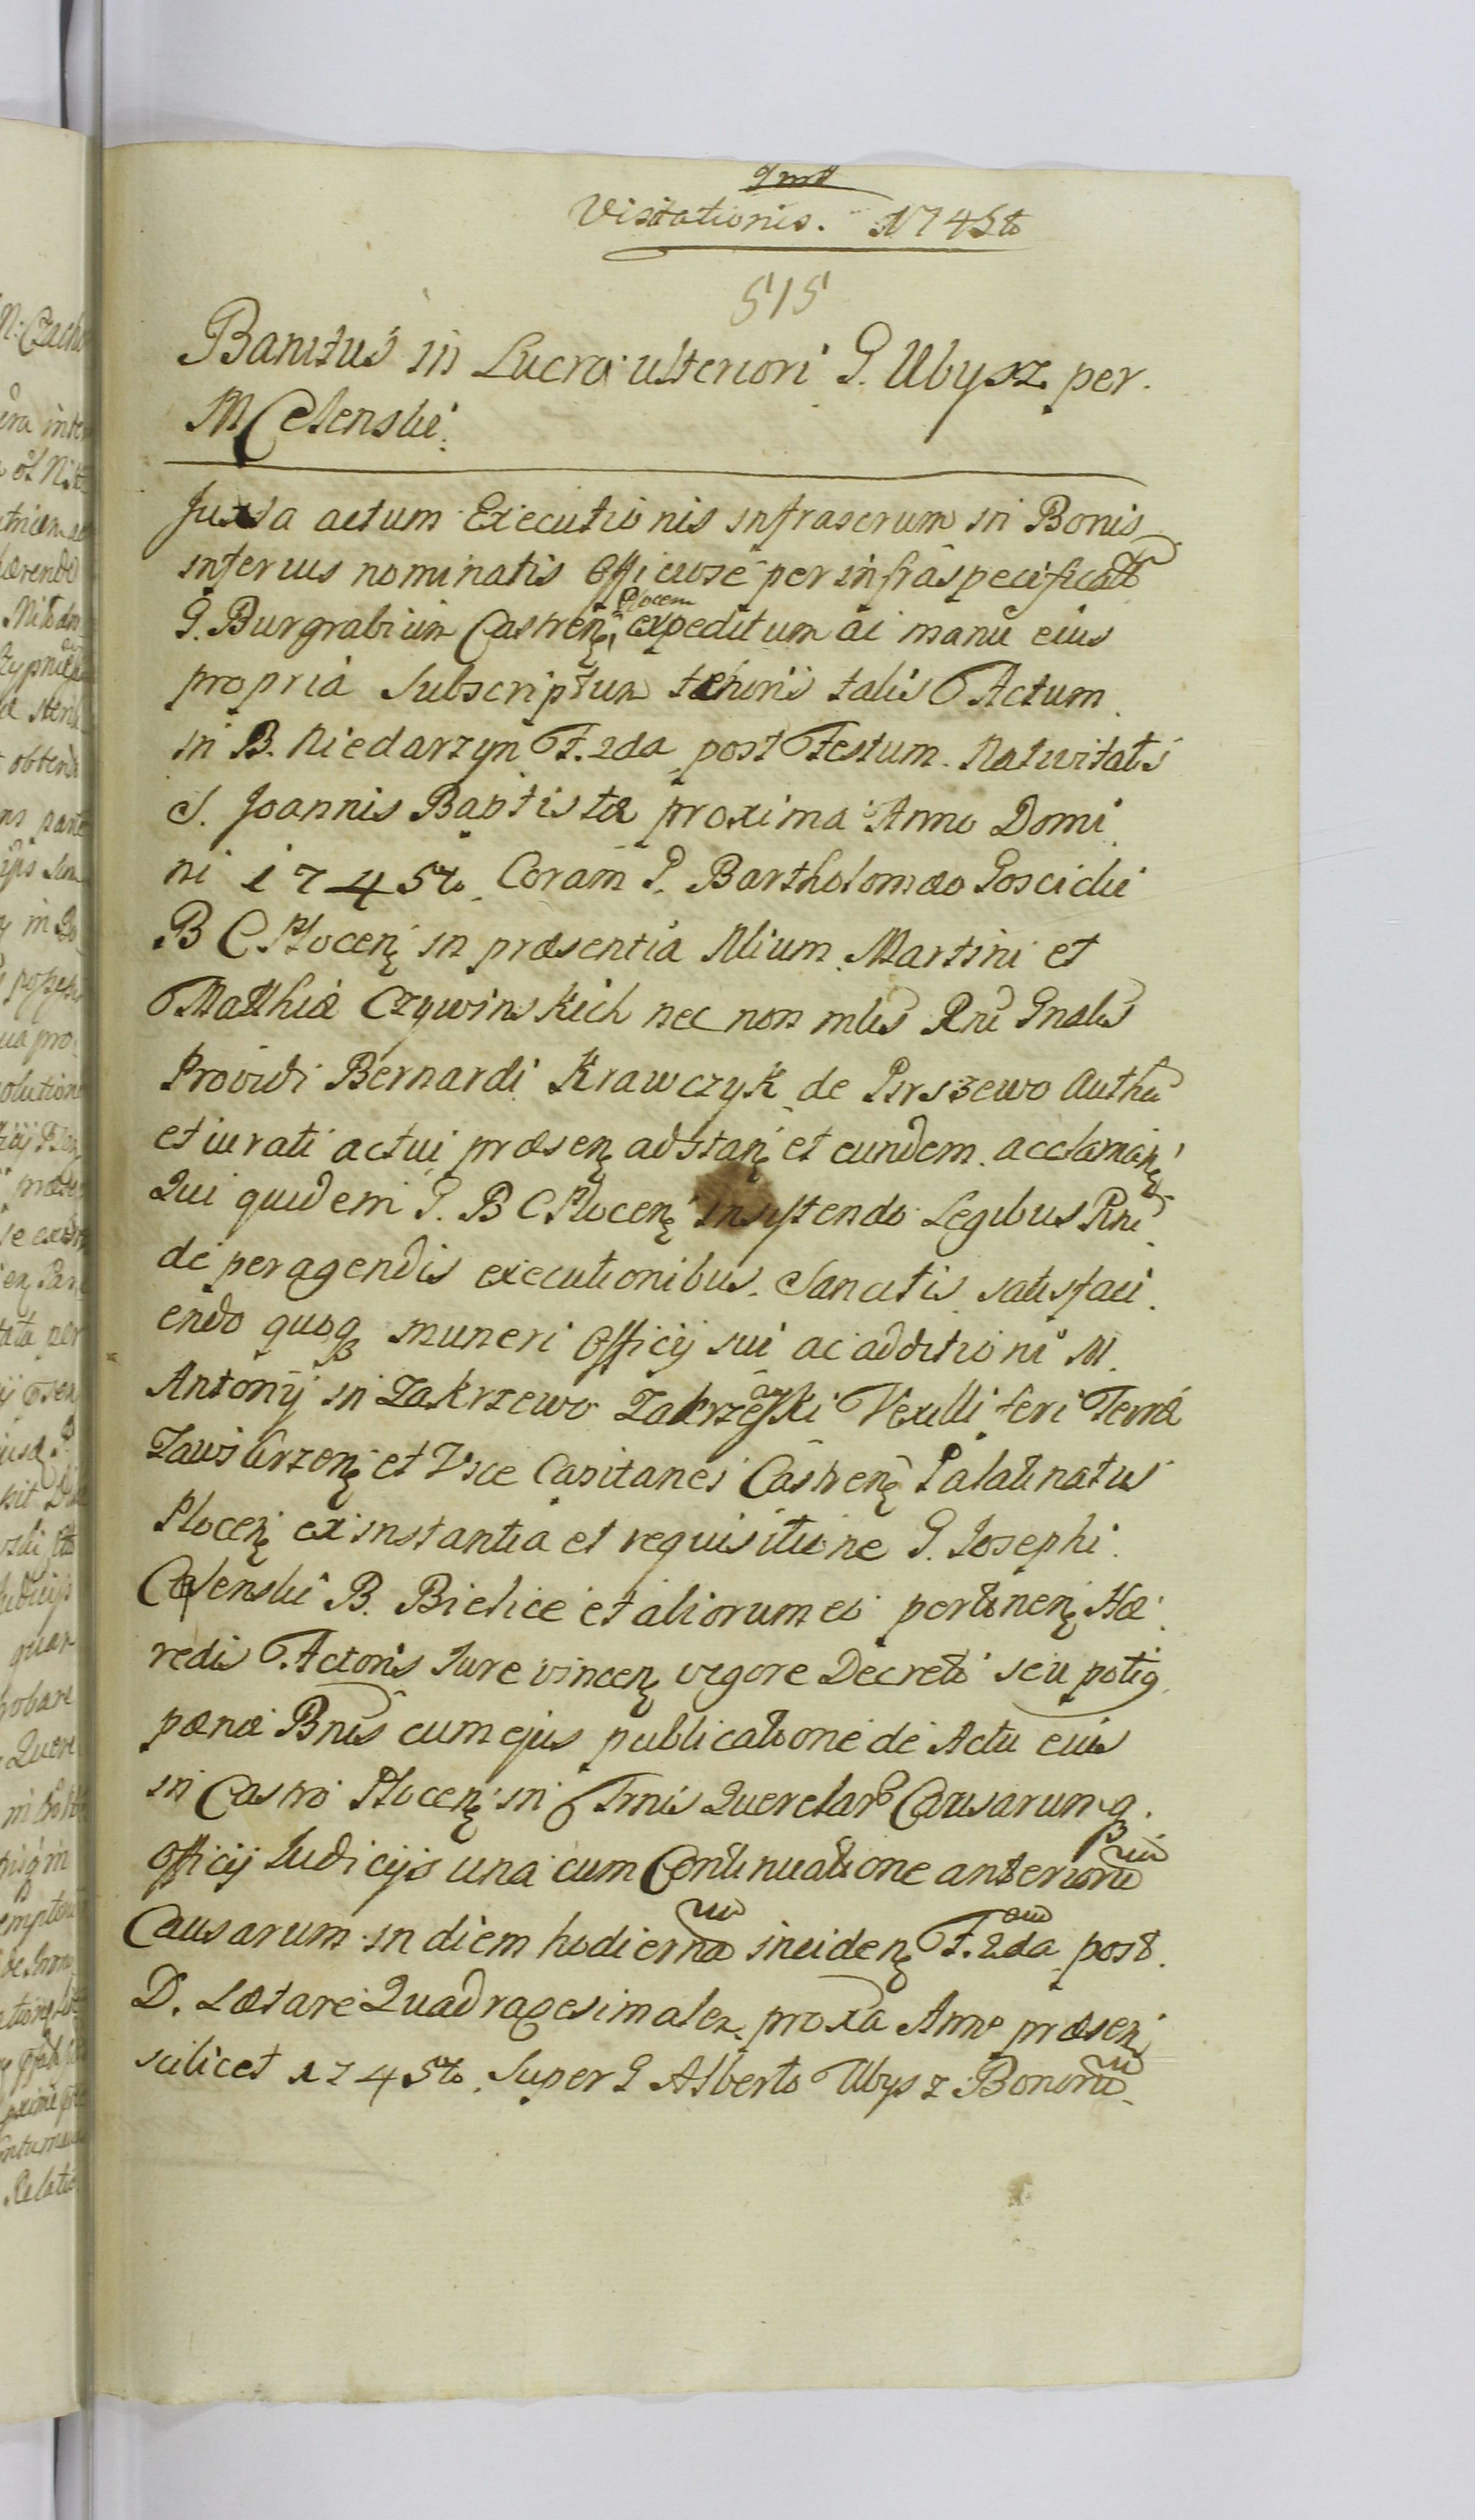 Visitationis. 1745to
515
Banitus in Lucro ulteriori G. Ubysz per
M Celenski
Juxta actum Executionis infrascrum in Bonis
inferius nominatis Officiose per infraspecificatt
G. Burgrabium Castrenę Plocen expeditum ai manu eius
propria Subscriptum tenoris talis Actum
in B. Niedarzyn F. 2da post Festum Nativitatis
S. Joannis Baptistæ proxima Anno Domi
ni 1745to Coram G. Bartholomæo Goscicki
B C Plocenę in præsentia Nlium Martini et
Mathiæ Czywinskich nec non mlis Rni Gnalis
Providi Bernardi Krawczyk de Pirszewo Authen
et iurati actui præsenę adstanę et eundem acclamanę
Qui quidem G. B C Plocenę insystendo Legibus Rni
de peragendis executionibus Sancitis satisfaci
endo quoq muneri Officij sui ac additioni M
Antonij in Zakrzewo Zakrzewski Vexilliferi Terræ
Zawskrzenę et Vice Capitanei Castrenę Palatinatus
Plocenę ex instantia et requisitione G. Josephi
Celenski B. Bielice et aliorum eo pertinenę Hæ
redis Actoris Jure vincenę vigore Decreti seu potiq
pænæ Bnis cum ejus publicatione de Actu eius
in Castro Plocenę in Trnis Querelar Causarumq
officij Judicijs una cum Continuatione anteriorū
Causarum in diem hodiernā incidenę F. 2da post
D. Lætare Quadragesimalem proxa Anno præsenę
scilicet 1745to Super G Alberto Ubysz Bonorū